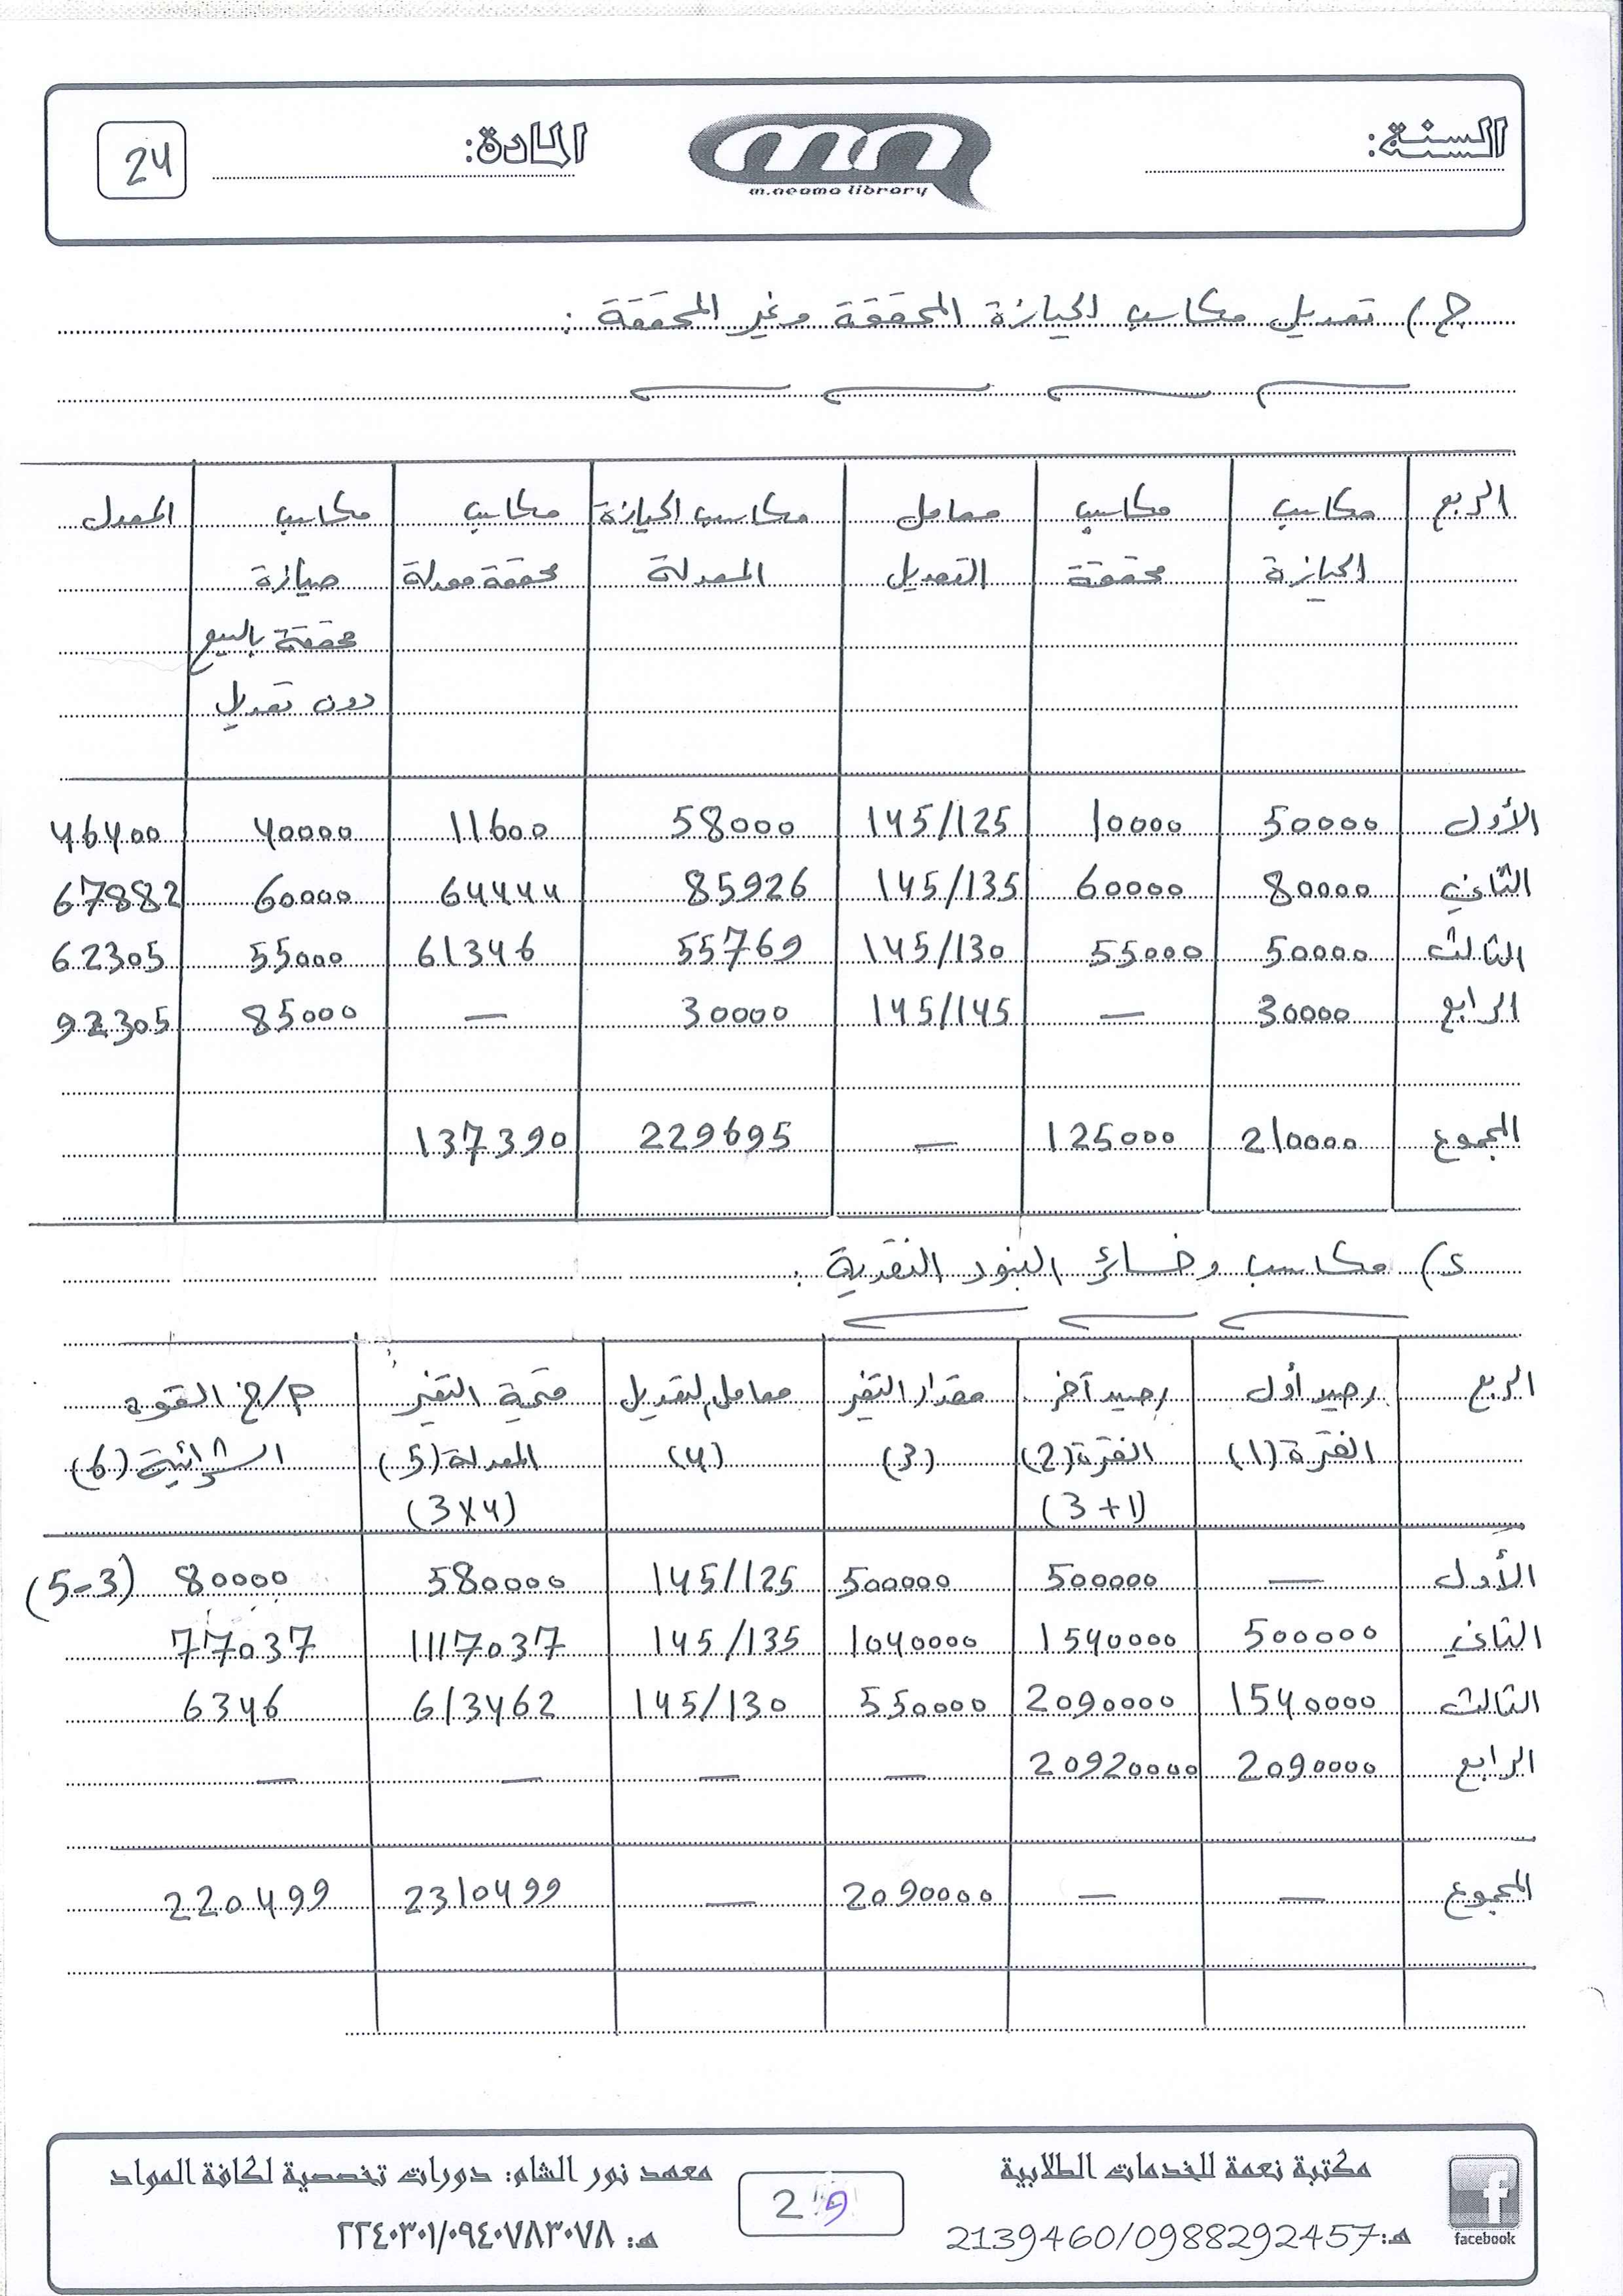 السنة:
m.neama library
المادة:
24
ج) تعديل مكاسب الحيازة المحققة وغير المحققة :
الربع | مكاسب | مكاسب | معامل | مكاسب الحيازة | مكاسب | مكاسب | المعدل
الحيازة | محققة | التعديل | المعدلة | محققة معدلة | حيازة
محققة بالبيع
دون تعديل
الأول | 50000 | 10000 | 145/125 | 58000 | 11600 | 40000 | 46400
الثاني | 80000 | 60000 | 145/135 | 85926 | 64444 | 60000 | 67882
الثالث | 50000 | 55000 | 145/130 | 55769 | 61346 | 55000 | 62305
الرابع | 30000 | — | 145/145 | 30000 | — | 85000 | 92305
المجموع | 210000 | 125000 | — | 229695 | 137390
د) مكاسب وخسائر البنود النقدية :
الربع | رصيد أول | رصيد آخر | مقدار التغير | معامل لتعديل | قيمة التغير | م/خ القوه
الفترة (1) | الفترة (2) | (3) | (4) | المعدلة (5) | الشرائية (6)
(3+1) | (3×4)
الأول | — | 500000 | 500000 | 145/125 | 580000 | 80000 (5-3)
الثاني | 500000 | 1540000 | 1040000 | 145/135 | 1117037 | 77037
الثالث | 1540000 | 2090000 | 550000 | 145/130 | 613462 | 6346
الرابع | 2090000 | 20920000 | — | — | — | —
المجموع | — | — | 2090000 | — | 2310499 | 220499
مكتبة نعمة للخدمات الطلابية
هـ: 2139460/0988292457
facebook
29
معهد نور الشام: دورات تخصصية لكافة المواد
هـ: ٢٢٤٠٣٠١/٠٩٤٠٧٨٣٠٧٨